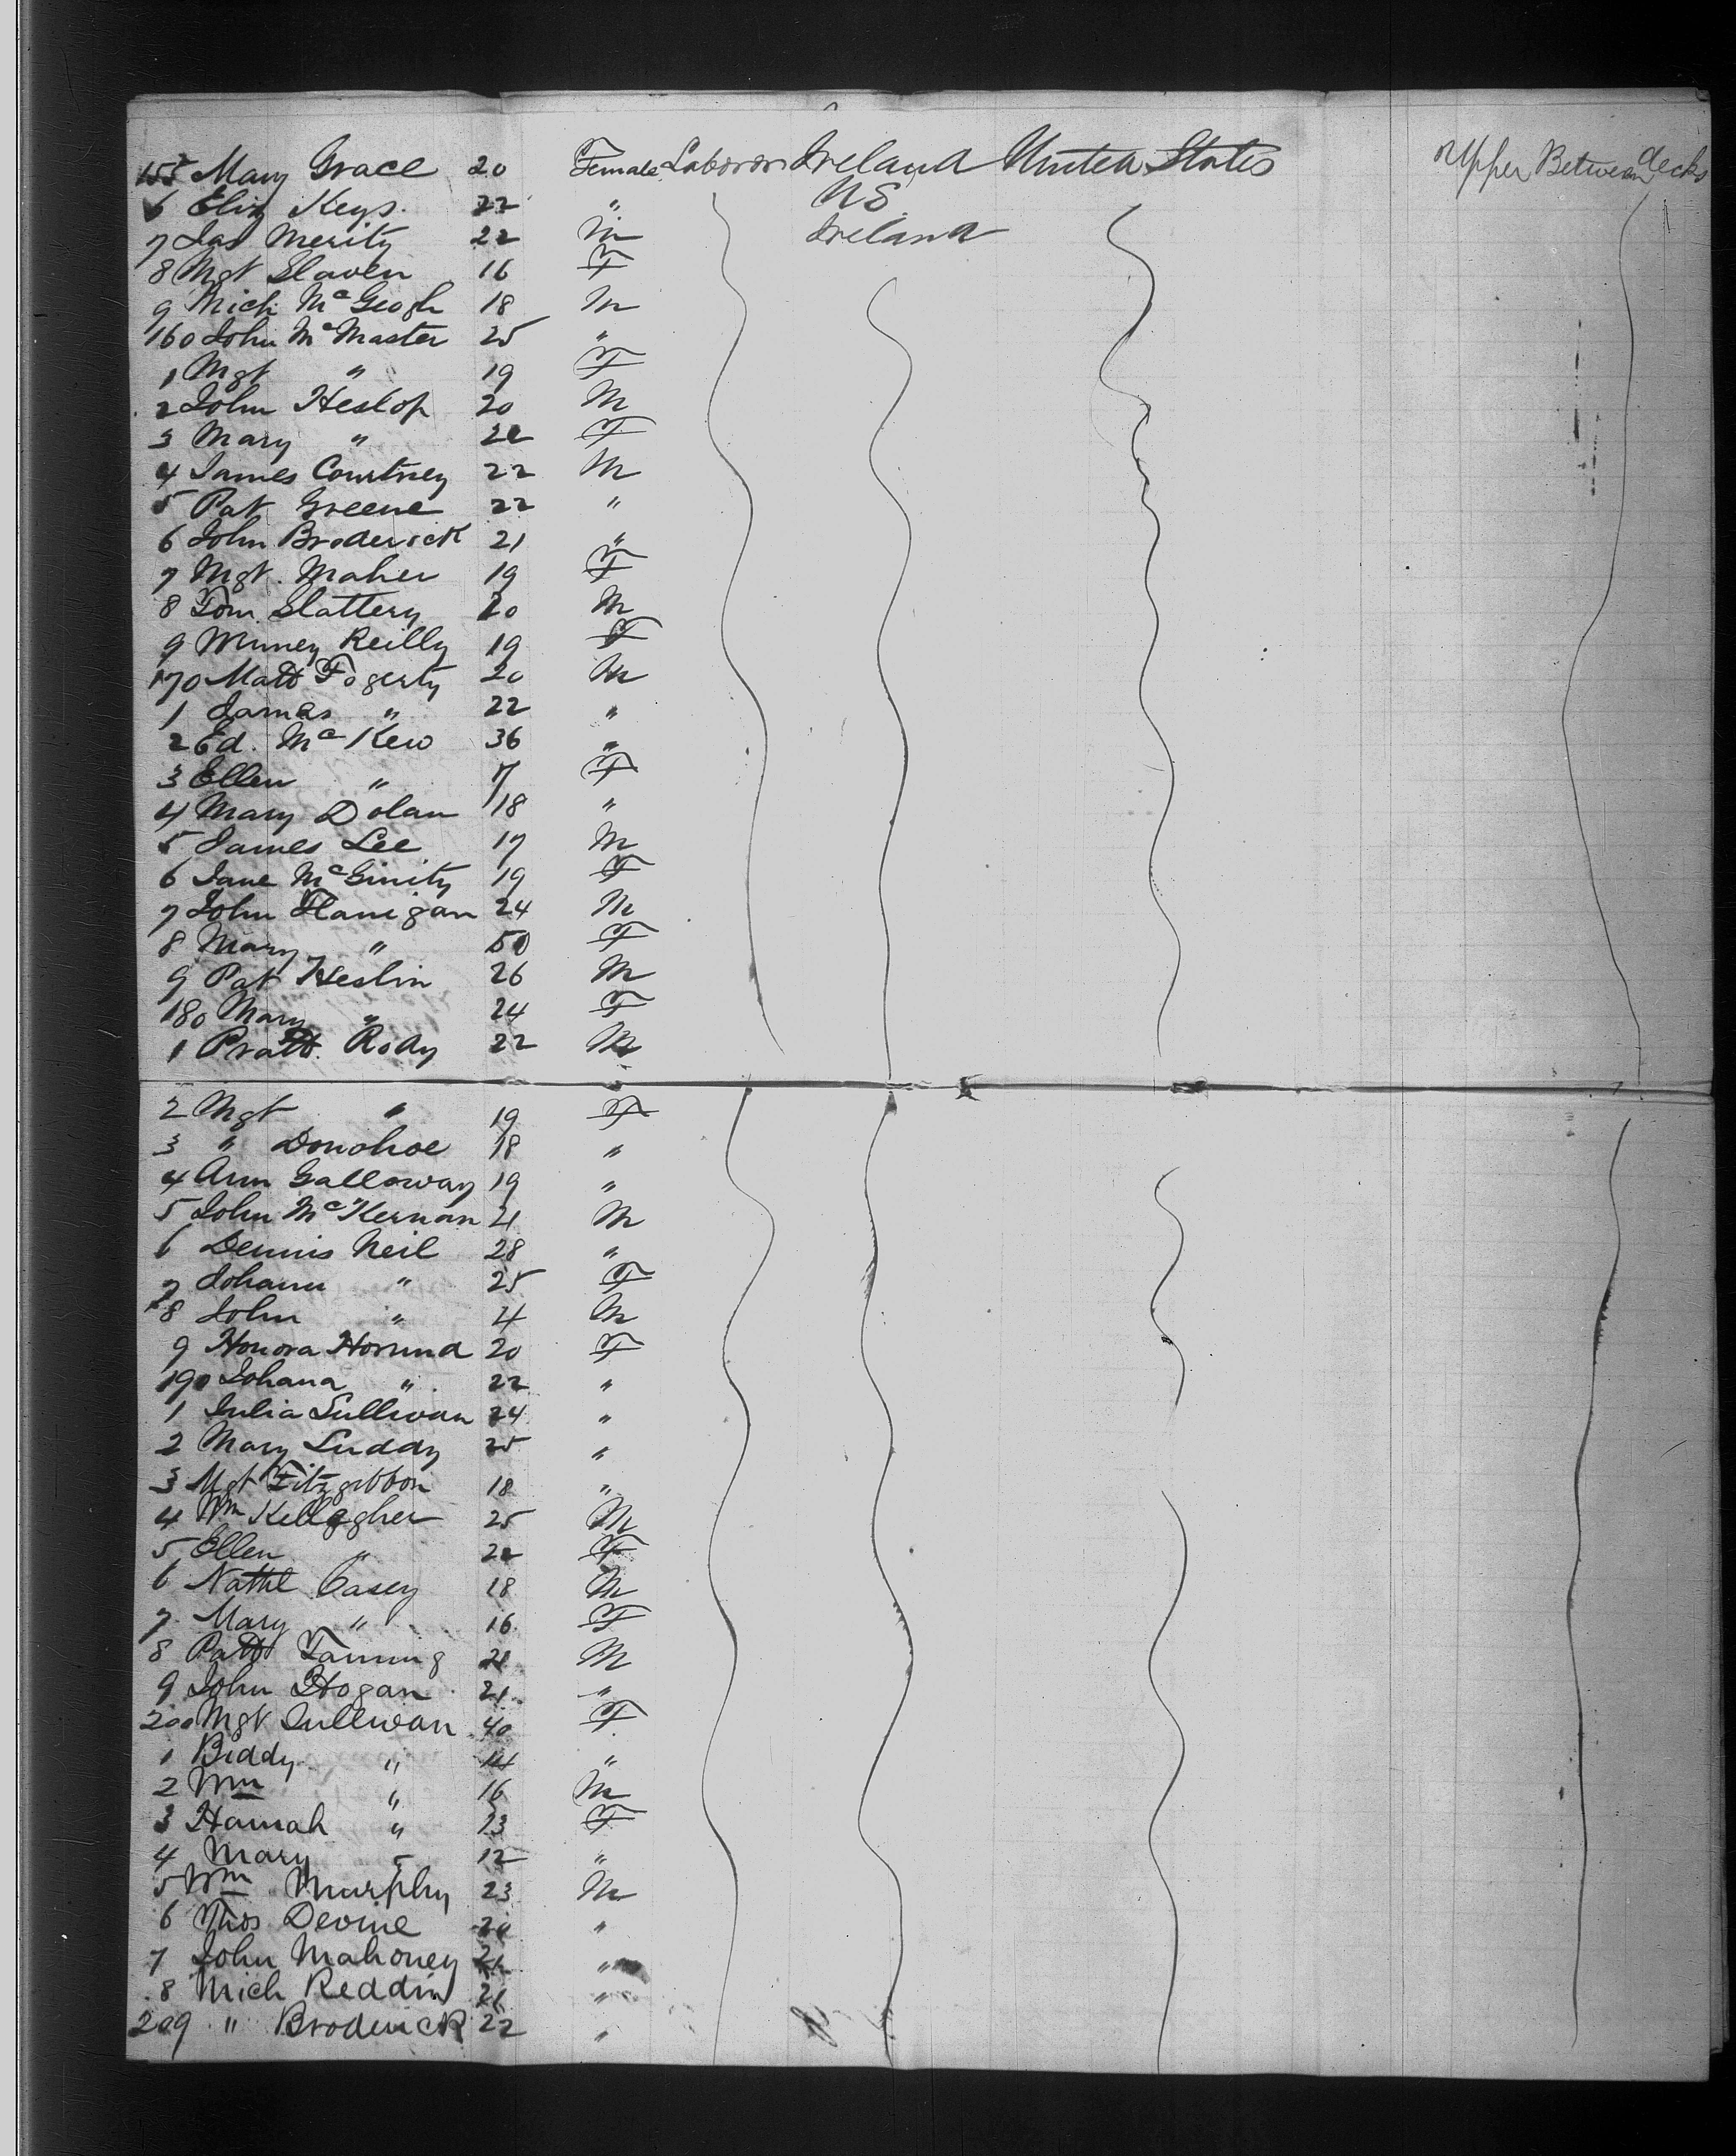 155 Mary Grace 20 Female Laborors Ireland United States Upper Between decks
6 Eliz Keys. 22 " US
7 Jas Merity 22 M Ireland
8 Mgt Slaven 16 F
9 Mich McGeogh 18 M
160 John McMaster 25 "
1 Mgt " 19 F
2 John Heslop 20 M
3 Mary " 22 F
4 James Courtney 22 M
5 Pat Greene 22 "
6 John Broderick 21 "
7 Mgt. Maher 19 F
8 Tom. Slattery 20 M
9 Winney Reilly 19 F
170 Matt Fogerty 20 M
1 James " 22 "
2 Ed. McKew 36 "
3 Ellen " 17 F
4 Mary Dolan 18 "
5 James Lee 17 M
6 Jane McGinity 19 F
7 John Flanigan 24 M
8 Mary " 50 F
9 Pat Heslin 26 M
180 Mary " 24 F
1 Pratt. Rody 22 M
2 Mgt " 19 F
3 " Donohoe 18 "
4 Ann Galloway 19 "
5 John McKernan 21 M
6 Dennis Neil 28 "
7 Johann " 25 F
8 John " 4 M
9 Honora 20 F
190 Johana " 22 "
1 Julia Sullivan 24 "
2 Mary Luddy 25 "
3 Mgt Fitzgibbon 18 "
4 Wm Kellegher 25 M
5 Ellen " 22 F
6 Nathl Casey 18 M
7 Mary " 16 F
8 Patt Fanning 21 M
9 John Hogan 21 "
200 Mgt Sullivan 40 F
1 Biddy " 14 "
2 Wm " 16 M
3 Hannah " 13 F
4 Mary " 12 "
5 Wm Murphy 23 M
6 Thos Devine 20 "
7 John Mahoney "
8 Mich Reddin 21 "
209 " Broderick 22 "